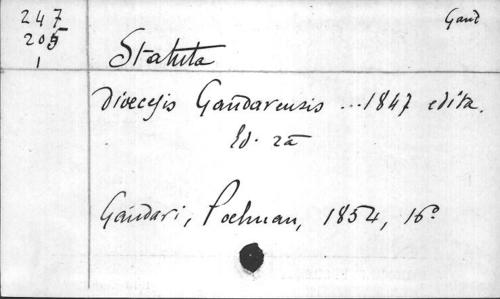 247
205
1
Gand
Statuta
Diœcesis Gandavensis ... 1847 edita.
Ed. 2a
Gandavi, Poelman, 1854, 16°